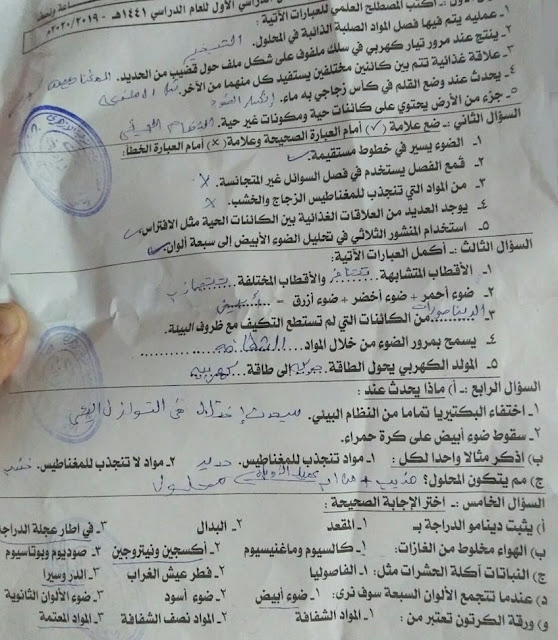 الأول :ـ اكتب المصطلح العلمي للعبارات الأتية : الأول للعام الدراسي ١٤٤١هـ - ٢٠١٩/ ٢٠٢٠م
١ـ عمليه يتم فيها فصل المواد الصلبة الذائبة في المحلول. التبخير
٢ـ ينتج عند مرور تيار كهربي في سلك ملفوف على شكل ملف حول قضيب من الحديد.
٣ـ علاقة غذائية تتم بين كائنين مختلفين يستفيد كل منهما من الأخر.
٤ـ يحدث عند وضع القلم في كأس زجاجي به ماء. انكسار الضوء
٥ـ جزء من الأرض يحتوي على كائنات حية ومكونات غير حية. النظام البيئي
السؤال الثاني :ـ ضع علامة (✓) أمام العبارة الصحيحة وعلامة (×) أمام العبارة الخطأ:
١ـ الضوء يسير في خطوط مستقيمة. ✓
٢ـ قمع الفصل يستخدم في فصل السوائل غير المتجانسة. ×
٣ـ من المواد التي تنجذب للمغناطيس الزجاج والخشب. ×
٤ـ يوجد العديد من العلاقات الغذائية بين الكائنات الحية مثل الافتراس ✓
٥ـ استخدام المنشور الثلاثي في تحليل الضوء الأبيض إلى سبعة ألوان. ✓
السؤال الثالث :ـ أكمل العبارات الأتية :
١ـ الأقطاب المتشابهة ..تتنافر.. والأقطاب المختلفة ..تتجاذب
٢ـ ضوء أحمر + ضوء أخضر + ضوء أزرق = ..أبيض
٣ـ الديناصورات ......من الكائنات التي لم تستطع التكيف مع ظروف البيئة.
٤ـ يسمح بمرور الضوء من خلال المواد..الشفافه..........
٥ـ المولد الكهربي يحول الطاقة حركية إلى طاقة ..كهربيه
السؤال الرابع :ـ أ) ماذا يحدث عند :
١ـ اختفاء البكتيريا تماما من النظام البيئي. سيحدث إختلال في التوازن البيئي
٢ـ سقوط ضوء أبيض على كرة حمراء.
ب) اذكر مثالا واحدا لكل : ١ـ مواد تنجذب للمغناطيس. حديد ٢ـ مواد لا تنجذب للمغناطيس. خشب
ج) مم يتكون المحلول؟ مذيب + مذاب محلول
السؤال الخامس :ـ اختر الإجابة الصحيحة :
أ) يثبت دينامو الدراجة بـ ١ـ المقعد ٢ـ البدال ٣ـ في اطار عجلة الدراجة
ب) الهواء مخلوط من الغازات: ١ـ كالسيوم وماغنيسيوم ٢ـ أكسجين ونيتروجين ٣ـ صوديوم وبوتاسيوم
ج) النباتات آكلة الحشرات مثل : ١ـ الفاصوليا ٢ـ فطر عيش الغراب ٣ـ الدروسيرا
د) عندما تتجمع الألوان السبعة سوف نرى: ١ـ ضوء أبيض ٢ـ ضوء أسود ٣ـ ضوء الألوان الثانوية
و) ورقة الكرتون تعتبر من : ١ـ المواد الشفافة ٢ـ المواد نصف الشفافة ٣ـ المواد المعتمة